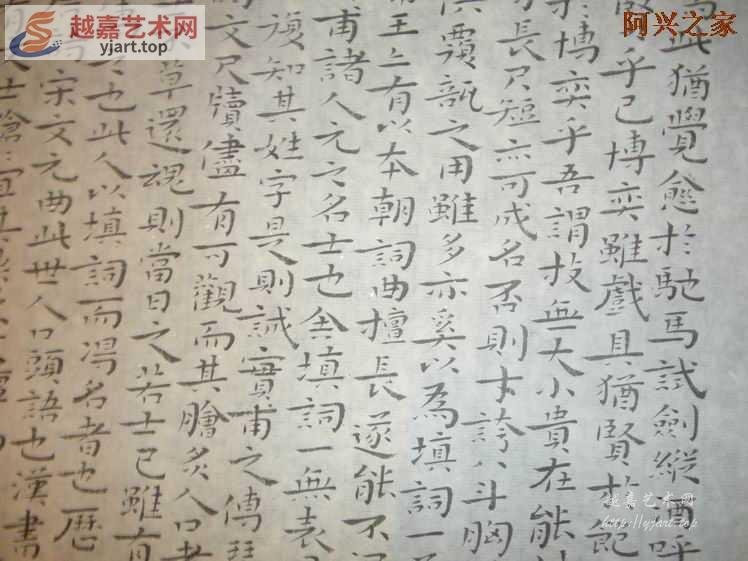 越嘉艺术网
yjart.top
阿兴之家
此猶覺愈扵馳馬試劍縱酒呼
乎已博奕雖戲具猶賢扵飽
扵博奕乎吾謂技無大小貴在能
長尺短亦可成名否則才誇八斗胸
覆瓿之用雖多亦奚以為填詞一
王上有以本朝詞曲擅長遂能不
甫諸人元之名士也舍填詞一無表
復知其姓字是則誠實甫之傳琵
文尺牘儘有可觀而其膾炙人口者
草還魂則當日之若士已雖有
也此人以填詞而得名者也歷
宋文元曲此世人口頭語也漢書
士 宜其
越嘉艺术网
http://yjart.top